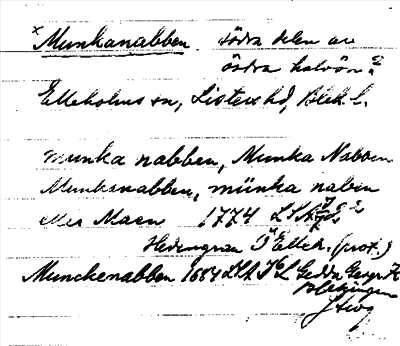 x Munkanabben södra delen av
östra halvön?
Elleholms sn, Listers hd, Blek. l.
munka nabben, Munka Nabben
Munkanabben, münka naben
eller Maen 1774 LSA
Hedengran Ö Elleh. (prot.)
Munckenabben 1684 LSA Gedda Geogr
Blekingen